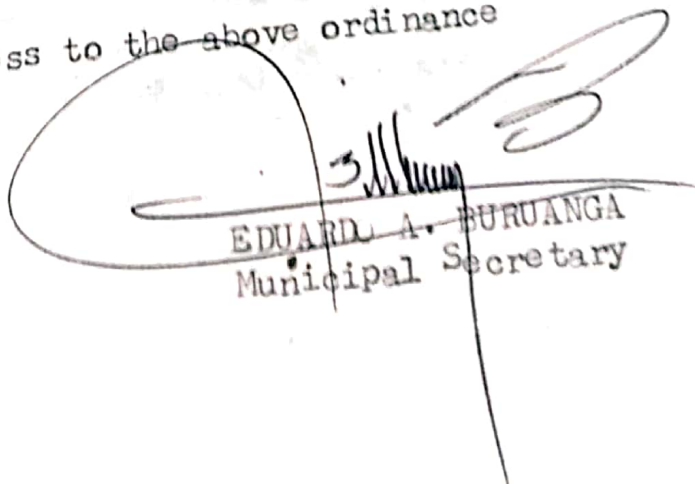 ss to the above ordinance
EDUARDO A. BURUANGA
Municipal Secretary